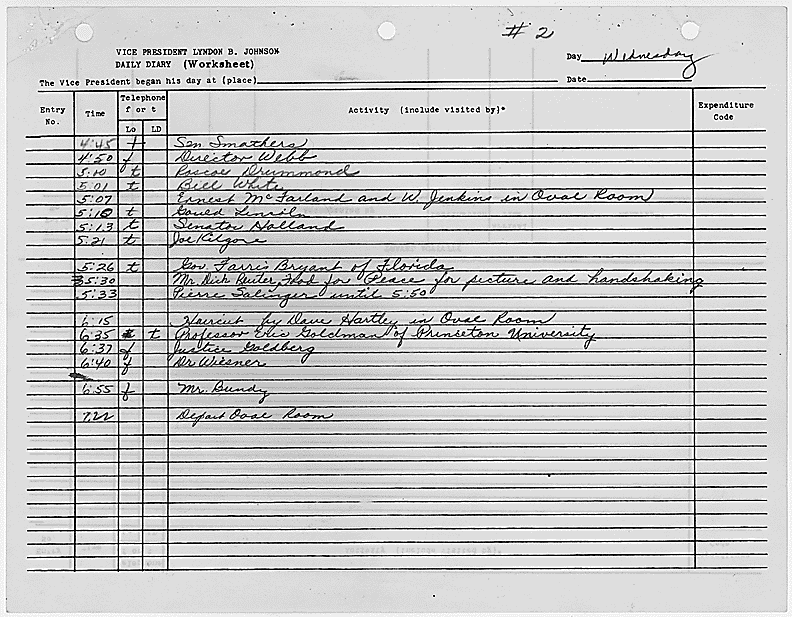 # 2
VICE PRESIDENT LYNDON B. JOHNSON
DAILY DIARY (Worksheet)
Day Wednesday
The Vice President began his day at (place)
Date
Entry No. Time Telephone f or t Lo LD Activity (include visited by)* Expenditure Code
4:45 f Sen Smathers
4:50 f Director Webb
5:10 t Roscoe Drummond
5:01 t Bill White
5:07 Ernest McFarland and W. Jenkins in Oval Room
5:10 t Gould Lincoln
5:13 t Senator Holland
5:21 t Joe Kilgore
5:26 t Gov. Farris Bryant of Florida
5:30 Mr. Dick Reuter, Food for Peace for picture and handshaking
5:33 Pierre Salinger until 5:50
6:15 Haircut by Dave Hartley in Oval Room
6:35 t Professor Eric Goldman of Princeton University
6:37 f Justice Goldberg
6:40 f Dr Wiesner
6:55 f Mr. Bundy
7:22 Depart Oval Room